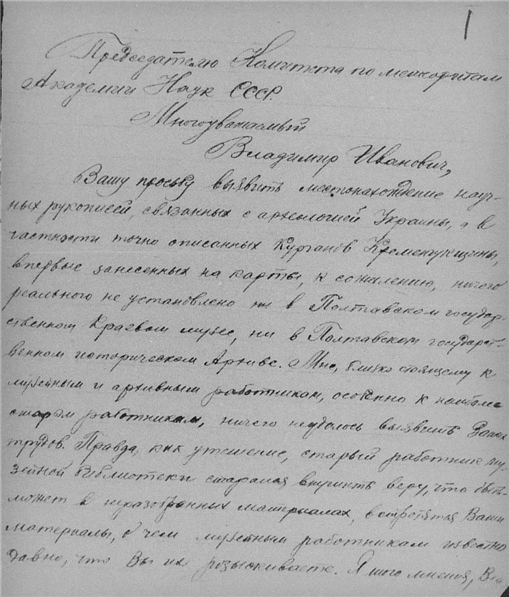 1
Председателю Комитета по метеоритам
Академии Наук СССР.
Многоуважаемый
Владимир Иванович,
Вашу просьбу выявить местонахождение науч-
ных рукописей, связанных с археологией Украины, а в
частности точно описанных Курганов Кременчугщины,
впервые занесенных на карты, к сожалению, ничего
реального не установлено ни в Полтавском государ-
ственном Краевом музее, ни в Полтавском государст-
венном историческом Архиве. Мне, близко стоящему к
музейным и архивным работникам, особенно к наиболее
старым работникам, ничего не удалось выявить Ваших
трудов. Правда, как утешение, старый работник му-
зейной Библиотеки старался внушить веру, что быть
может в неразобранных материалах, встретятся Ваши
материалы, о чем музейным работникам известно
давно, что Вы их разыскиваете. Я того мнения,